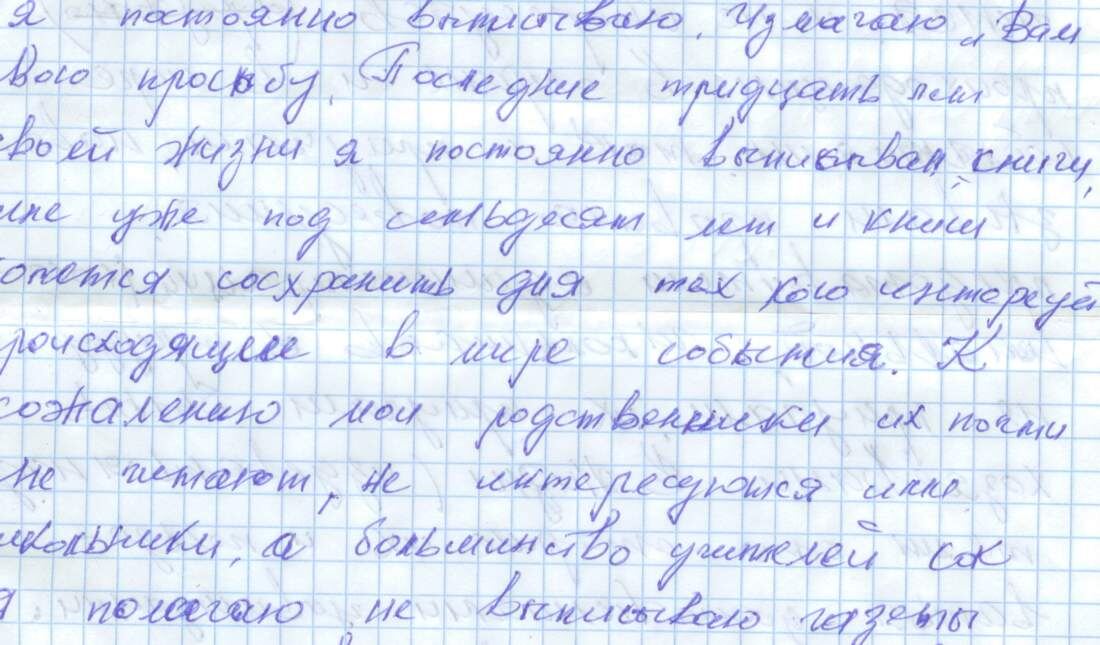 я постоянно выписываю. Излагаю Вам
вою просьбу. Последние тридцать лет
своей жизни я постоянно выписывал книги,
мне уже под семьдесят лет и книги
хочется сосхранить для тех кого интересует
роисходящие в мире события. К
сожалению мои родственники их почти
не читают, не интересуются ими
школьники, а большинство учителей как
я полагаю не выписываю газеты